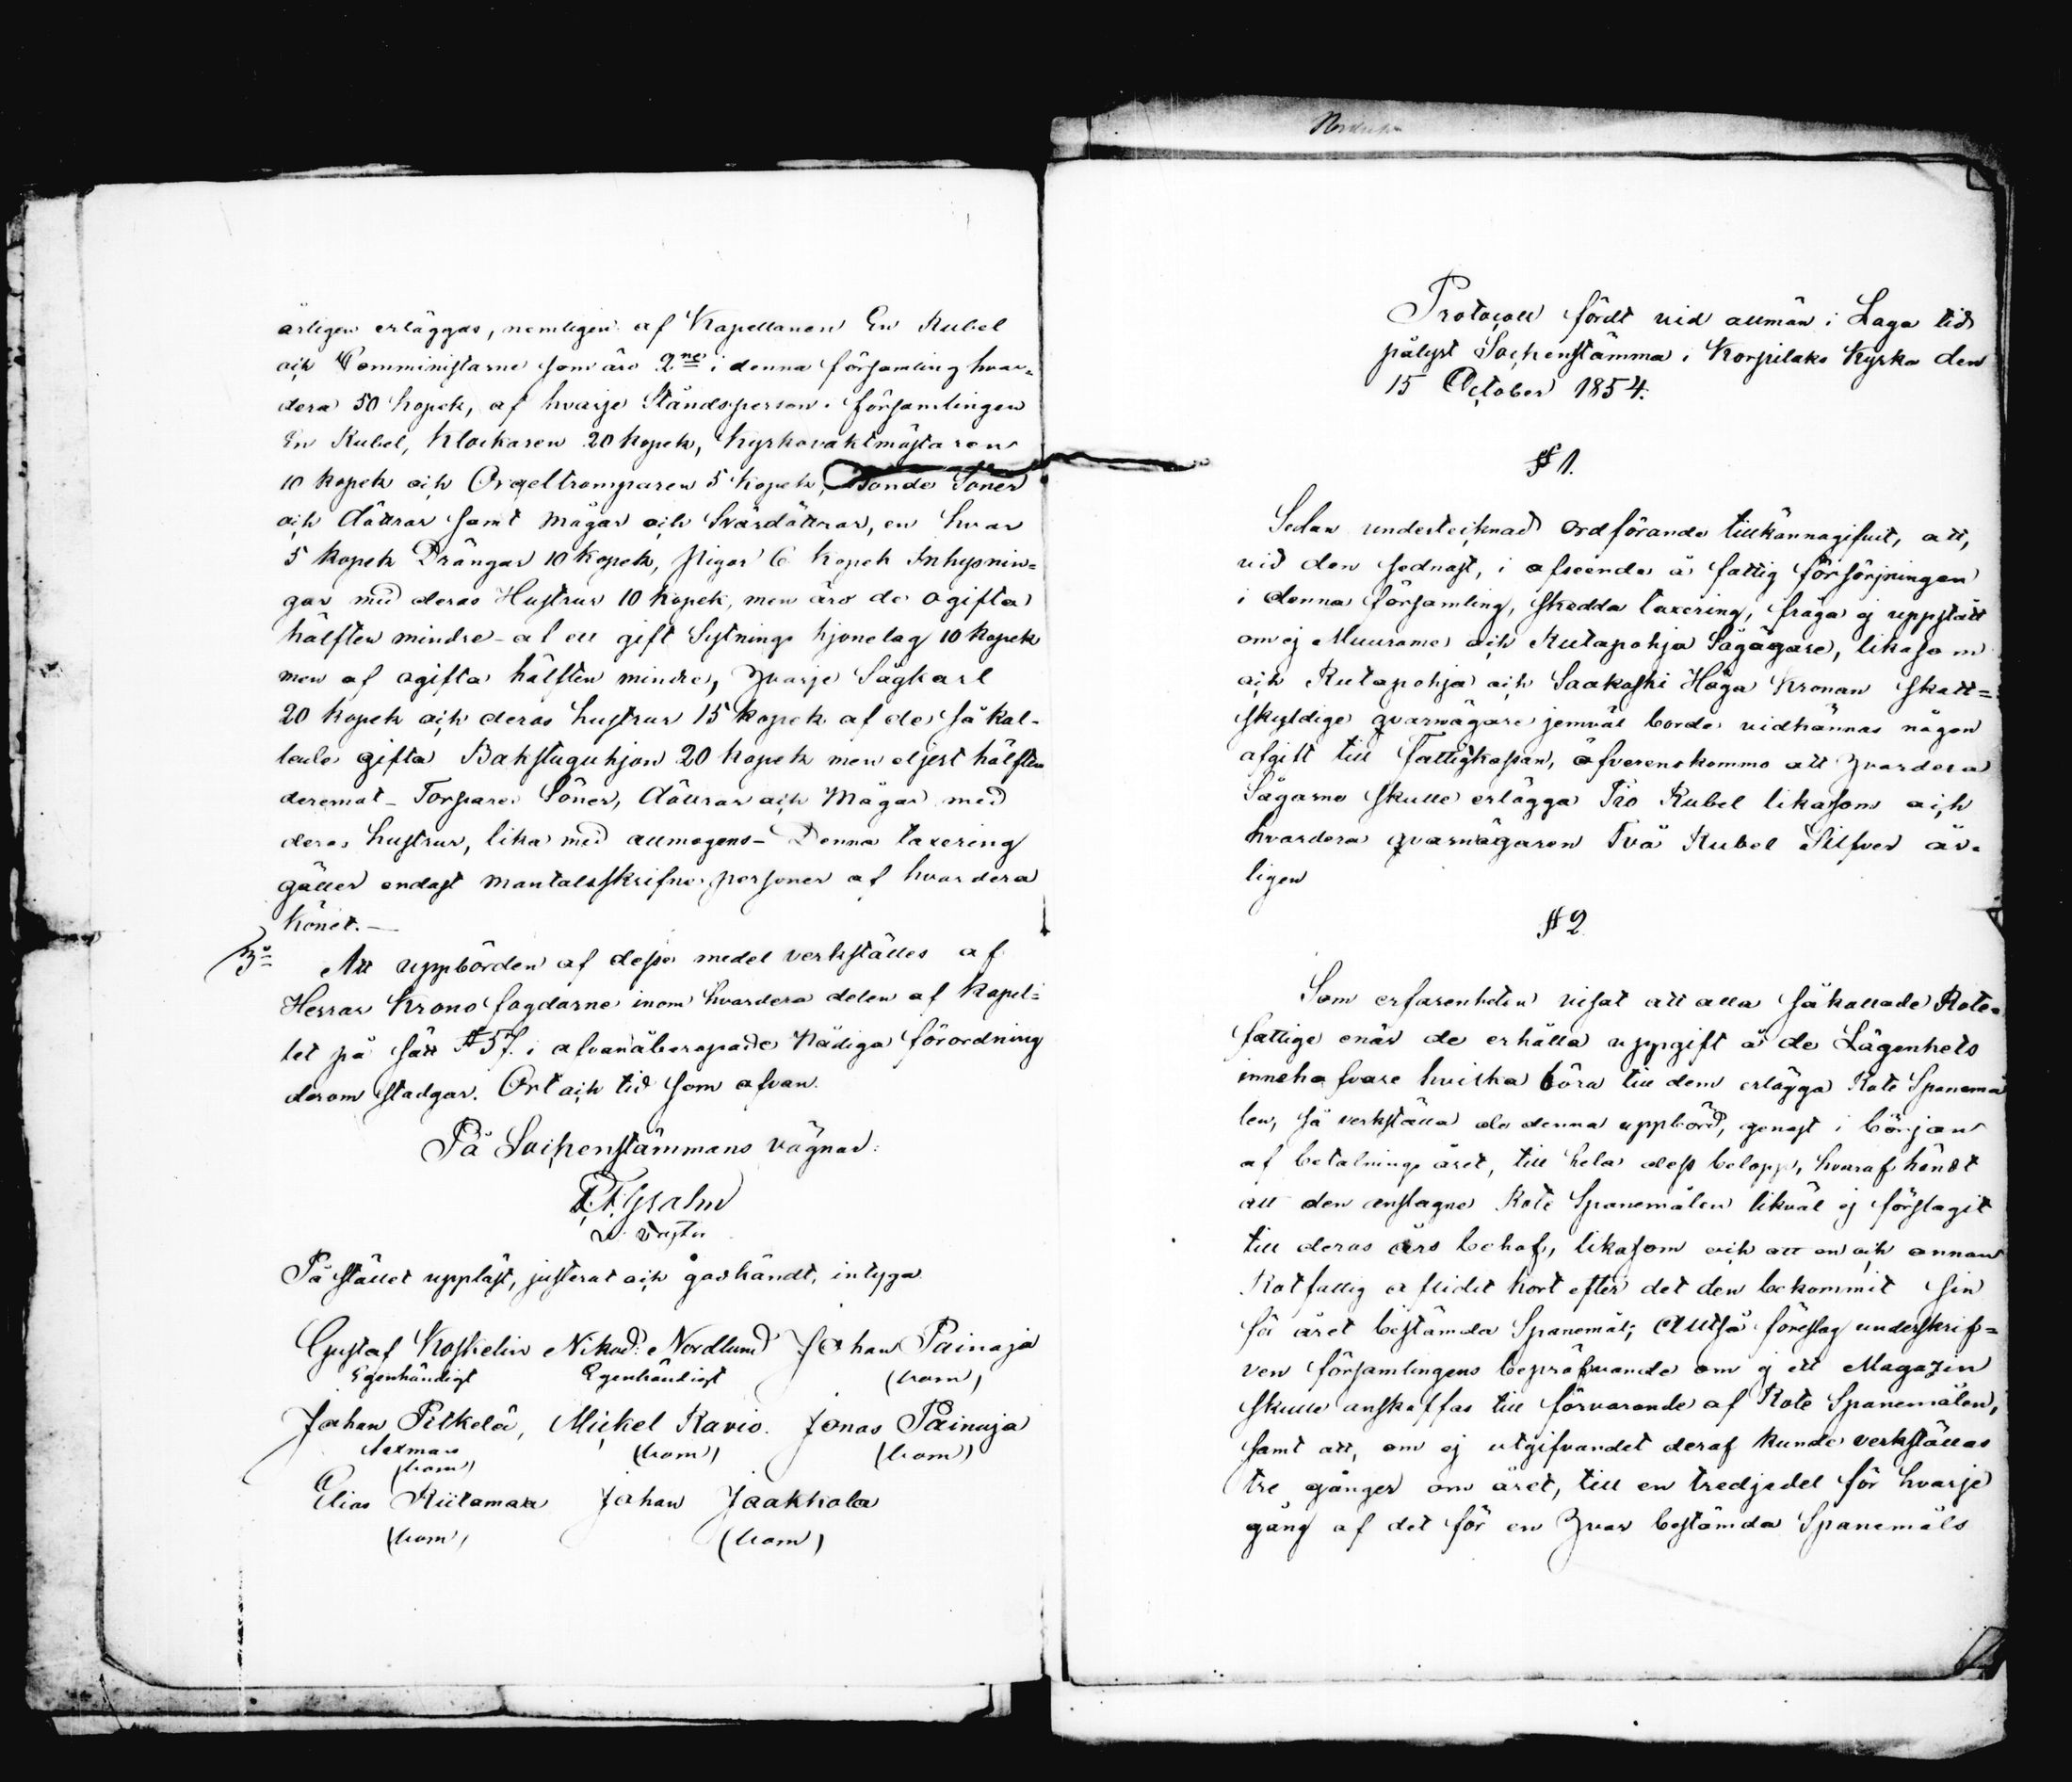 årligen erläggas, nemligen af Kapellanen En Rubel
och Comministarne som äro 2ne i denna församling hvar=
dera 50 kopek, af hvarje Ståndsperson i församlingen
En Rubel, Klockaren 20 kopek, Kyrkovaktmästaren
10 kopek och Orgeltramparen 5 kopek, Bonde Söner
och döttrar samt Mågar och Svärdöttrar, en hvar
5 kopek Drängar 10 kopek, pigor 6 kopek Inhysnin=
gar med deras Hustrur 10 kopek, men äro de ogifta
hälften mindre – af ett gift Sytnings hjonelag 10 kopek
men af ogifta hälften mindre, Hvarje Sågkarl
20 kopek och deras hustrur 15 kopek af de så kal-
lade gifta Bakstuguhjon 20 kopek men eljest hälften
deremot – Torpare Söner, döttrar och Mågar med
deras hustrur, lika med allmogens – Denna taxering
gäller endast Mantalsskrifne personer af hvardera
Könet. —
3o Att uppbörden af desse medel verkställes af
Herrar Krono fogdarne inom hvardera delen af Kapel=
let på sätt § 57. i ofvanåberopade Nådiga förordning
derom stadgar. Ort och tid som ofvan.
På Sockenstämmans vägnar:
Grahn
På stället uppläst, justerat och godkändt, intyga
Gustaf Koskelin Nikod: Nordlund Johan Painaja
Egenhändigt Egenhändigt (bom)
Johan Pitkelä, Mickel Ravio. Jonas Painaja
(bom) (bom) (bom)
Elias Riitamaa Johan Jaakkola
(bom) (bom)
Protocoll fördt vid allmän i Laga tid
pålyst Sockenstämma i Korpilaks Kyrka den
15 October 1854.
§ 1.
Sedan undertecknad Ordförande tillkännagifvit, att,
vid den sednast, i afseende å fattig försörjningen
i denna församling, skedda taxering, fråga ej uppstått
om ej Muurame och Rutapohja Sågägare, likasom
och Rutapohja och Saakoski Höga Kronan skatt=
skyldige qvarnägare jemväl borde vidkännas någon
afgift till Fattigkassan, öfverenskommo att Hvardera
Sågarne skulle erlägga Tio Rubel likasom och
hvardera qvarnägaren Två Rubel Silfver år-
ligen
§ 2
Som erfarenheten visat att alla såkallade Rote=
fattige enär de erhålla uppgift å de Lägenhets
innehafvare hvilka böra till dem erlägga Rote Spanemå
len, så verkställa de denna uppbörd, genast i början
af betalnings året, till hela dess belopp, hvaraf händt
att den anslagne Rote Spanemålen likväl ej förslagit
till deras års behof, likasom och att en och annan
Rotfattig aflidit kort efter det den bekommit sin
för året bestämda Spanemål; Alltså föreslog underskrif=
ven församlingens bepröfvande om ej ett Magazin
skulle anskaffas till förvarande af Rote Spanemålen,
samt att, om ej utgifvandet deraf kunde verkställas
tre gånger om året, till en tredjedel för hvarje
gång af det för en Hvar bestämda Spanemåls